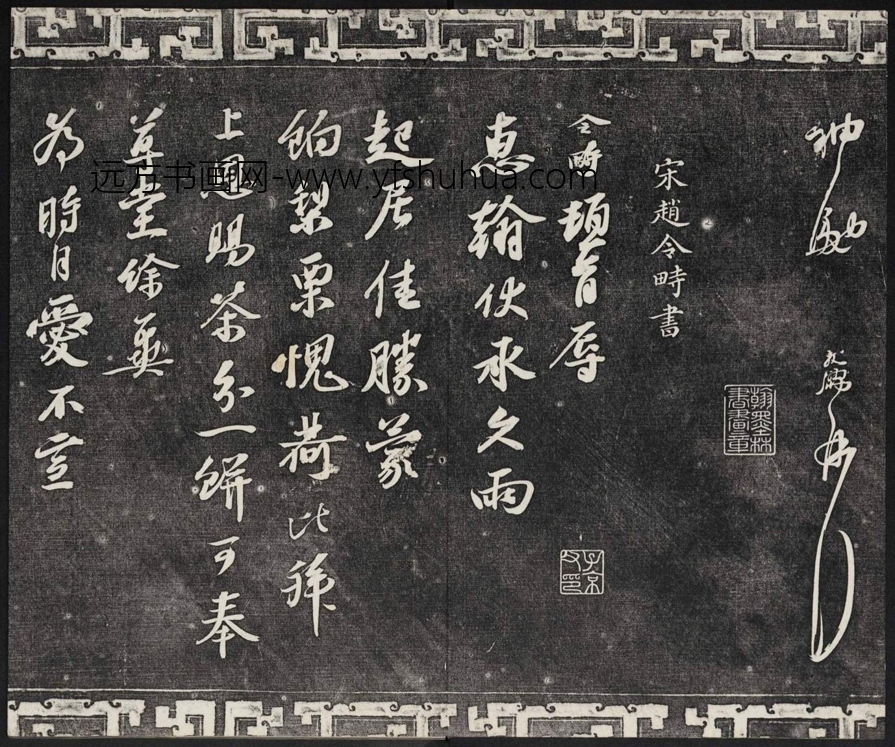 神馳
宋趙令畤書
翰墨林書畫章
令畤頓首辱
惠翰伏承久雨
子京父印
起居佳勝蒙
餉梨栗愧荷比拜
上恩賜茶分一餅可奉
尊堂餘並
為時自愛不宣
远方书画网-www.yfshuhua.com